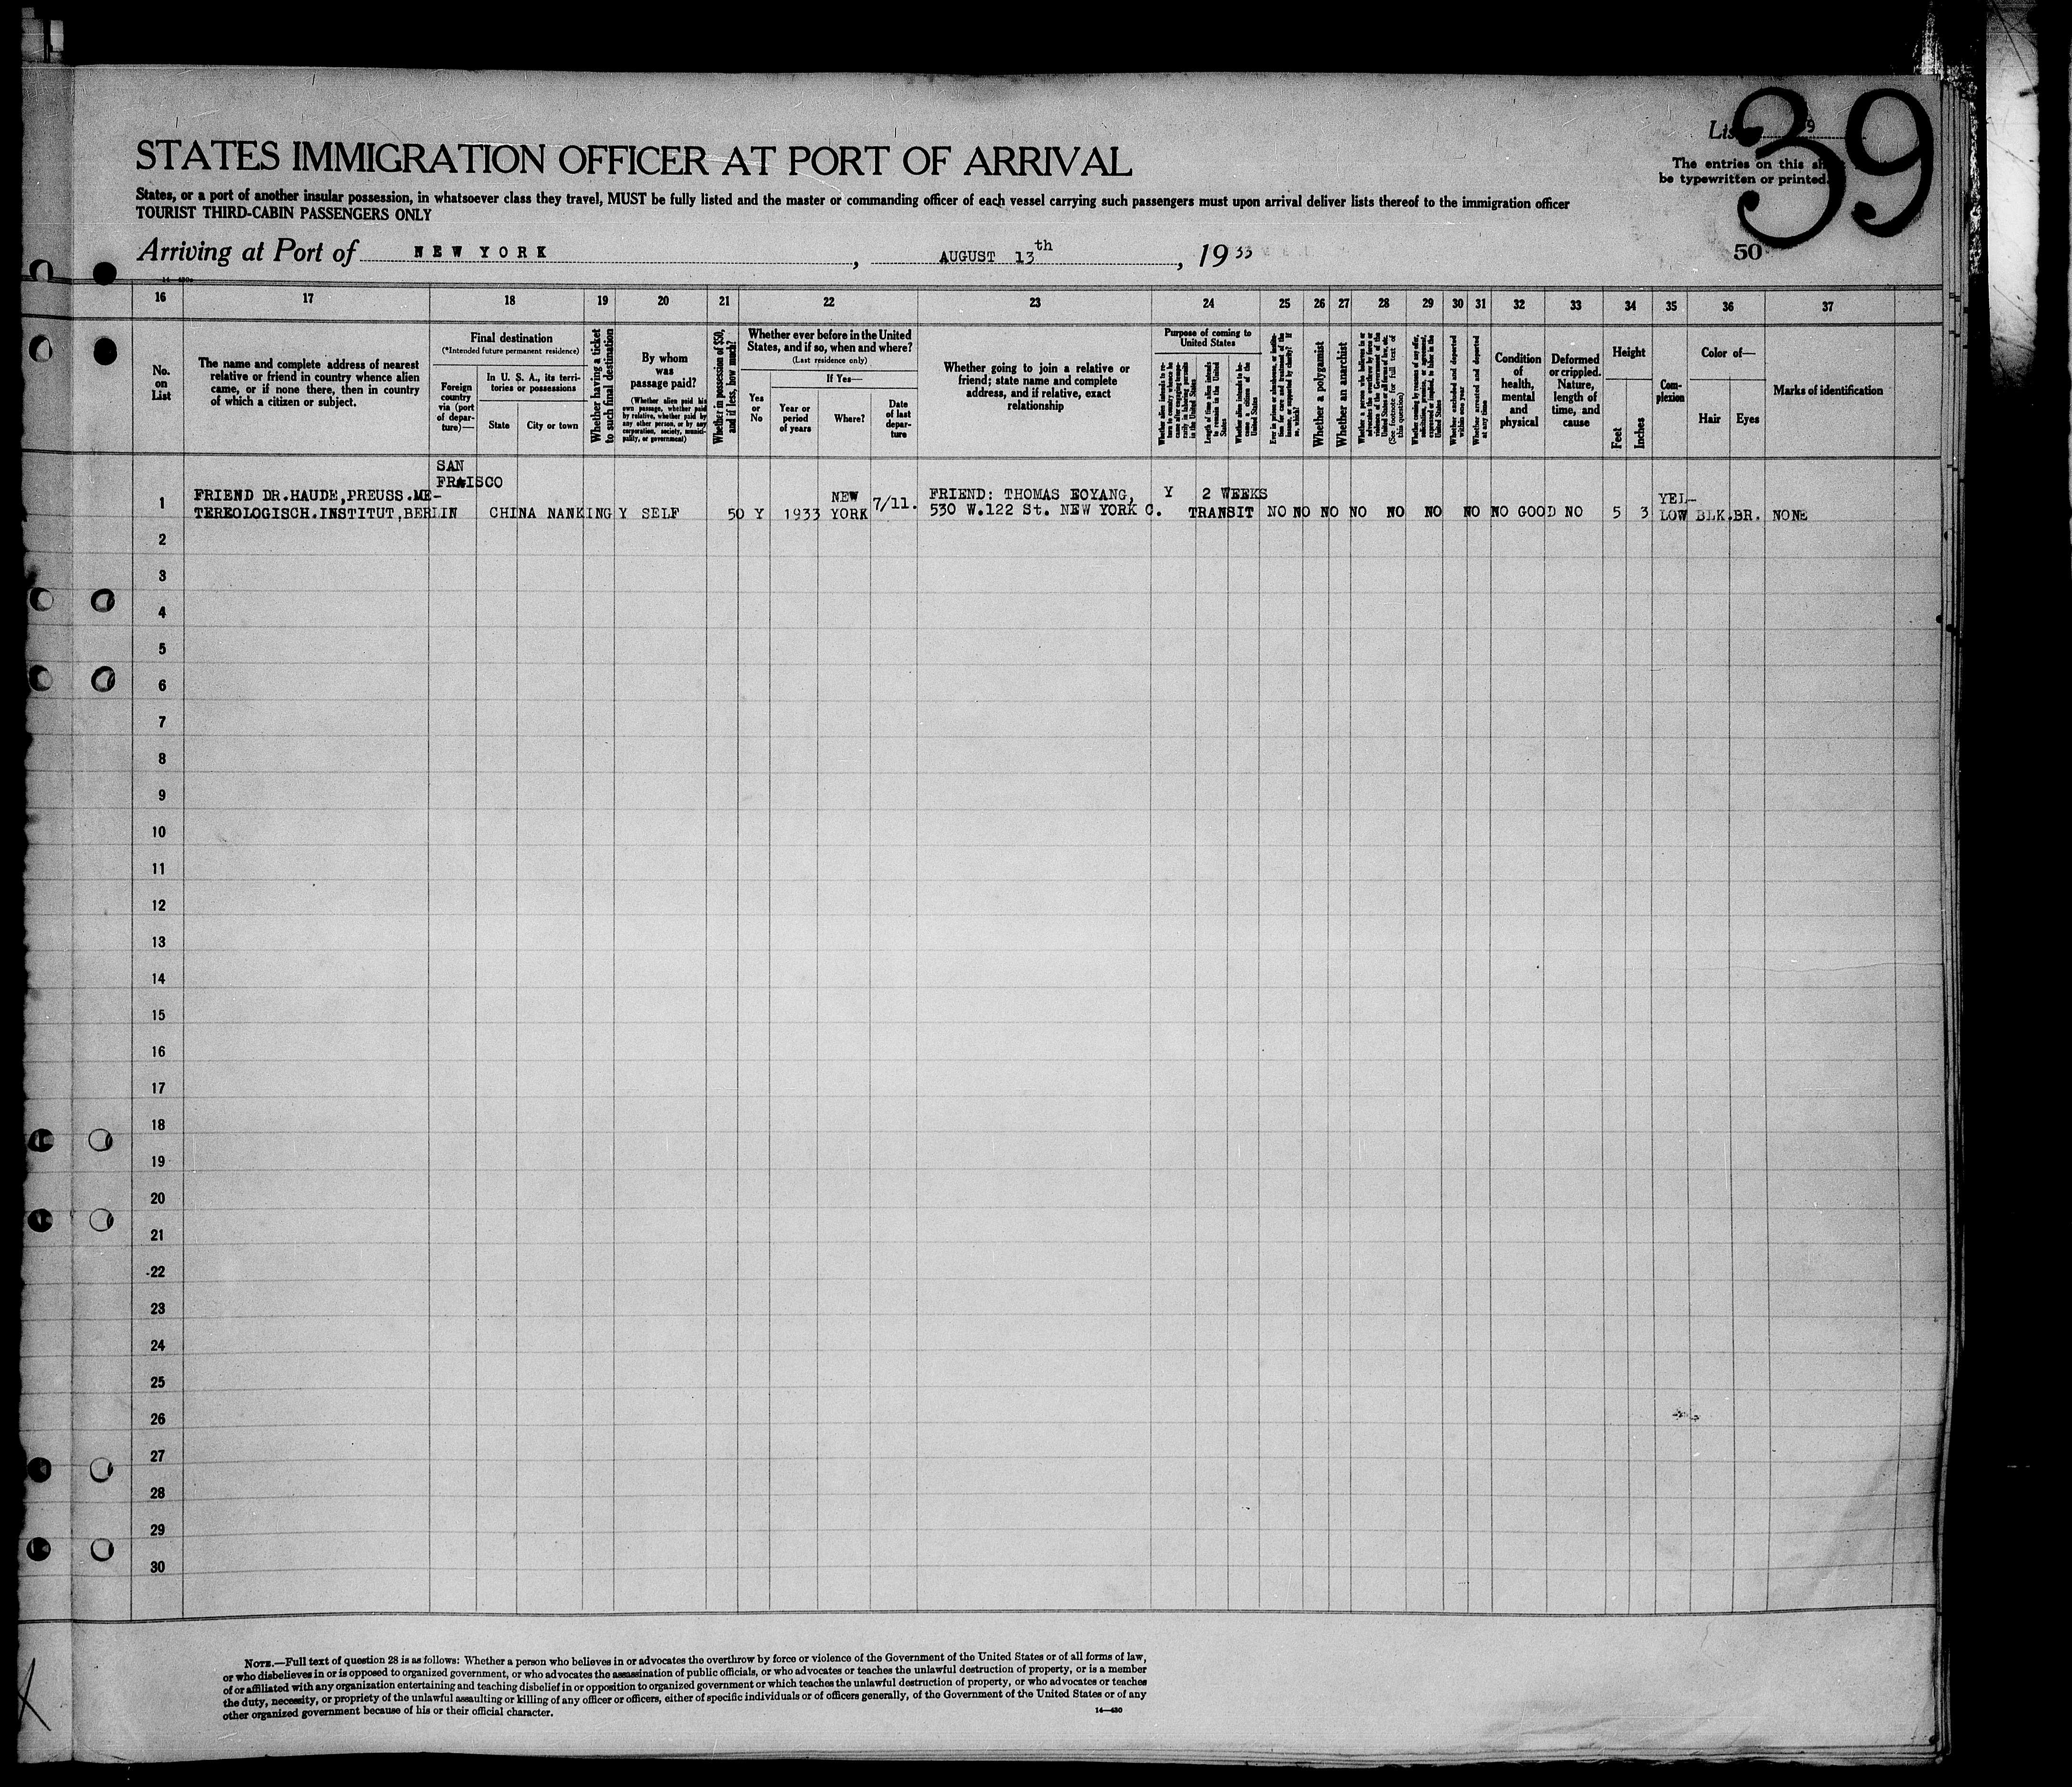 39
List 9
The entries on this sh
be typewritten or printed.
STATES IMMIGRATION OFFICER AT PORT OF ARRIVAL
States, or a port of another insular possession, in whatsoever class they travel, MUST be fully listed and the master or commanding officer of each vessel carrying such passengers must upon arrival deliver lists thereof to the immigration officer
TOURIST THIRD-CABIN PASSENGERS ONLY
Arriving at Port of NEW YORK, AUGUST 13th, 1933
50
16 17 18 19 20 21 22 23 24 25 26 27 28 29 30 31 32 33 34 35 36 37
No.
on
List
The name and complete address of nearest
relative or friend in country whence alien
came, or if none there, then in country
of which a citizen or subject.
Final destination
(*Intended future permanent residence)
Foreign
country
via (port
of depar-
ture)—
In U. S. A., its terri-
tories or possessions
State
City or town
Whether having a ticket
to such final destination
By whom
was
passage paid?
(Whether alien paid his
own passage, whether paid
by relative, whether paid by
any other person, or by any
corporation, society, munici-
pality, or government)
Whether in possession of $50,
and if less, how much?
Whether ever before in the United
States, and if so, when and where?
(Last residence only)
Yes
or
No
If Yes—
Year or
period
of years
Where?
Date
of last
depar-
ture
Whether going to join a relative or
friend; state name and complete
address, and if relative, exact
relationship
Purpose of coming to
United States
Whether alien intends to re-
turn to country whence he
came after engaging tempo-
rarily in laboring pursuits
in the United States
Length of time alien intends
to remain in the United
States
Whether alien intends to be-
come a citizen of the
United States
Ever in prison or almshouse, or institu-
tion for care and treatment of the
insane, or supported by charity? If
so, which?
Whether a polygamist
Whether an anarchist
(See footnote for full text of
this question)
Whether excluded and deported
within one year
Whether arrested and deported
at any time
Condition
of
health,
mental
and
physical
Deformed
or crippled.
Nature,
length of
time, and
cause
Height
Feet
Inches
Com-
plexion
Color of—
Hair
Eyes
Marks of identification
SAN
FRAISCO
1 FRIEND DR.HAUDE,PREUSS.ME-
TEREOLOGISCH.INSTITUT,BERLIN CHINA NANKING Y SELF 50 Y 1933 NEW
YORK 7/11.
FRIEND: THOMAS EOYANG,
530 W.122 St. NEW YORK C.
Y 2 WEEKS
TRANSIT NO NO NO NO NO NO NO NO GOOD NO 5 3 YEL-
LOW BLK.BR. NONE
2
3
4
5
6
7
8
9
10
11
12
13
14
15
16
17
18
19
20
21
22
23
24
25
26
27
28
29
30
NOTE.—Full text of question 28 is as follows: Whether a person who believes in or advocates the overthrow by force or violence of the Government of the United States or of all forms of law,
or who disbelieves in or is opposed to organized government, or who advocates the assassination of public officials, or who advocates or teaches the unlawful destruction of property, or is a member
of or affiliated with any organization entertaining and teaching disbelief in or opposition to organized government or which teaches the unlawful destruction of property, or who advocates or teaches
the duty, necessity, or propriety of the unlawful assaulting or killing of any officer or officers, either of specific individuals or of officers generally, of the Government of the United States or of any
other organized government because of his or their official character.
14—430